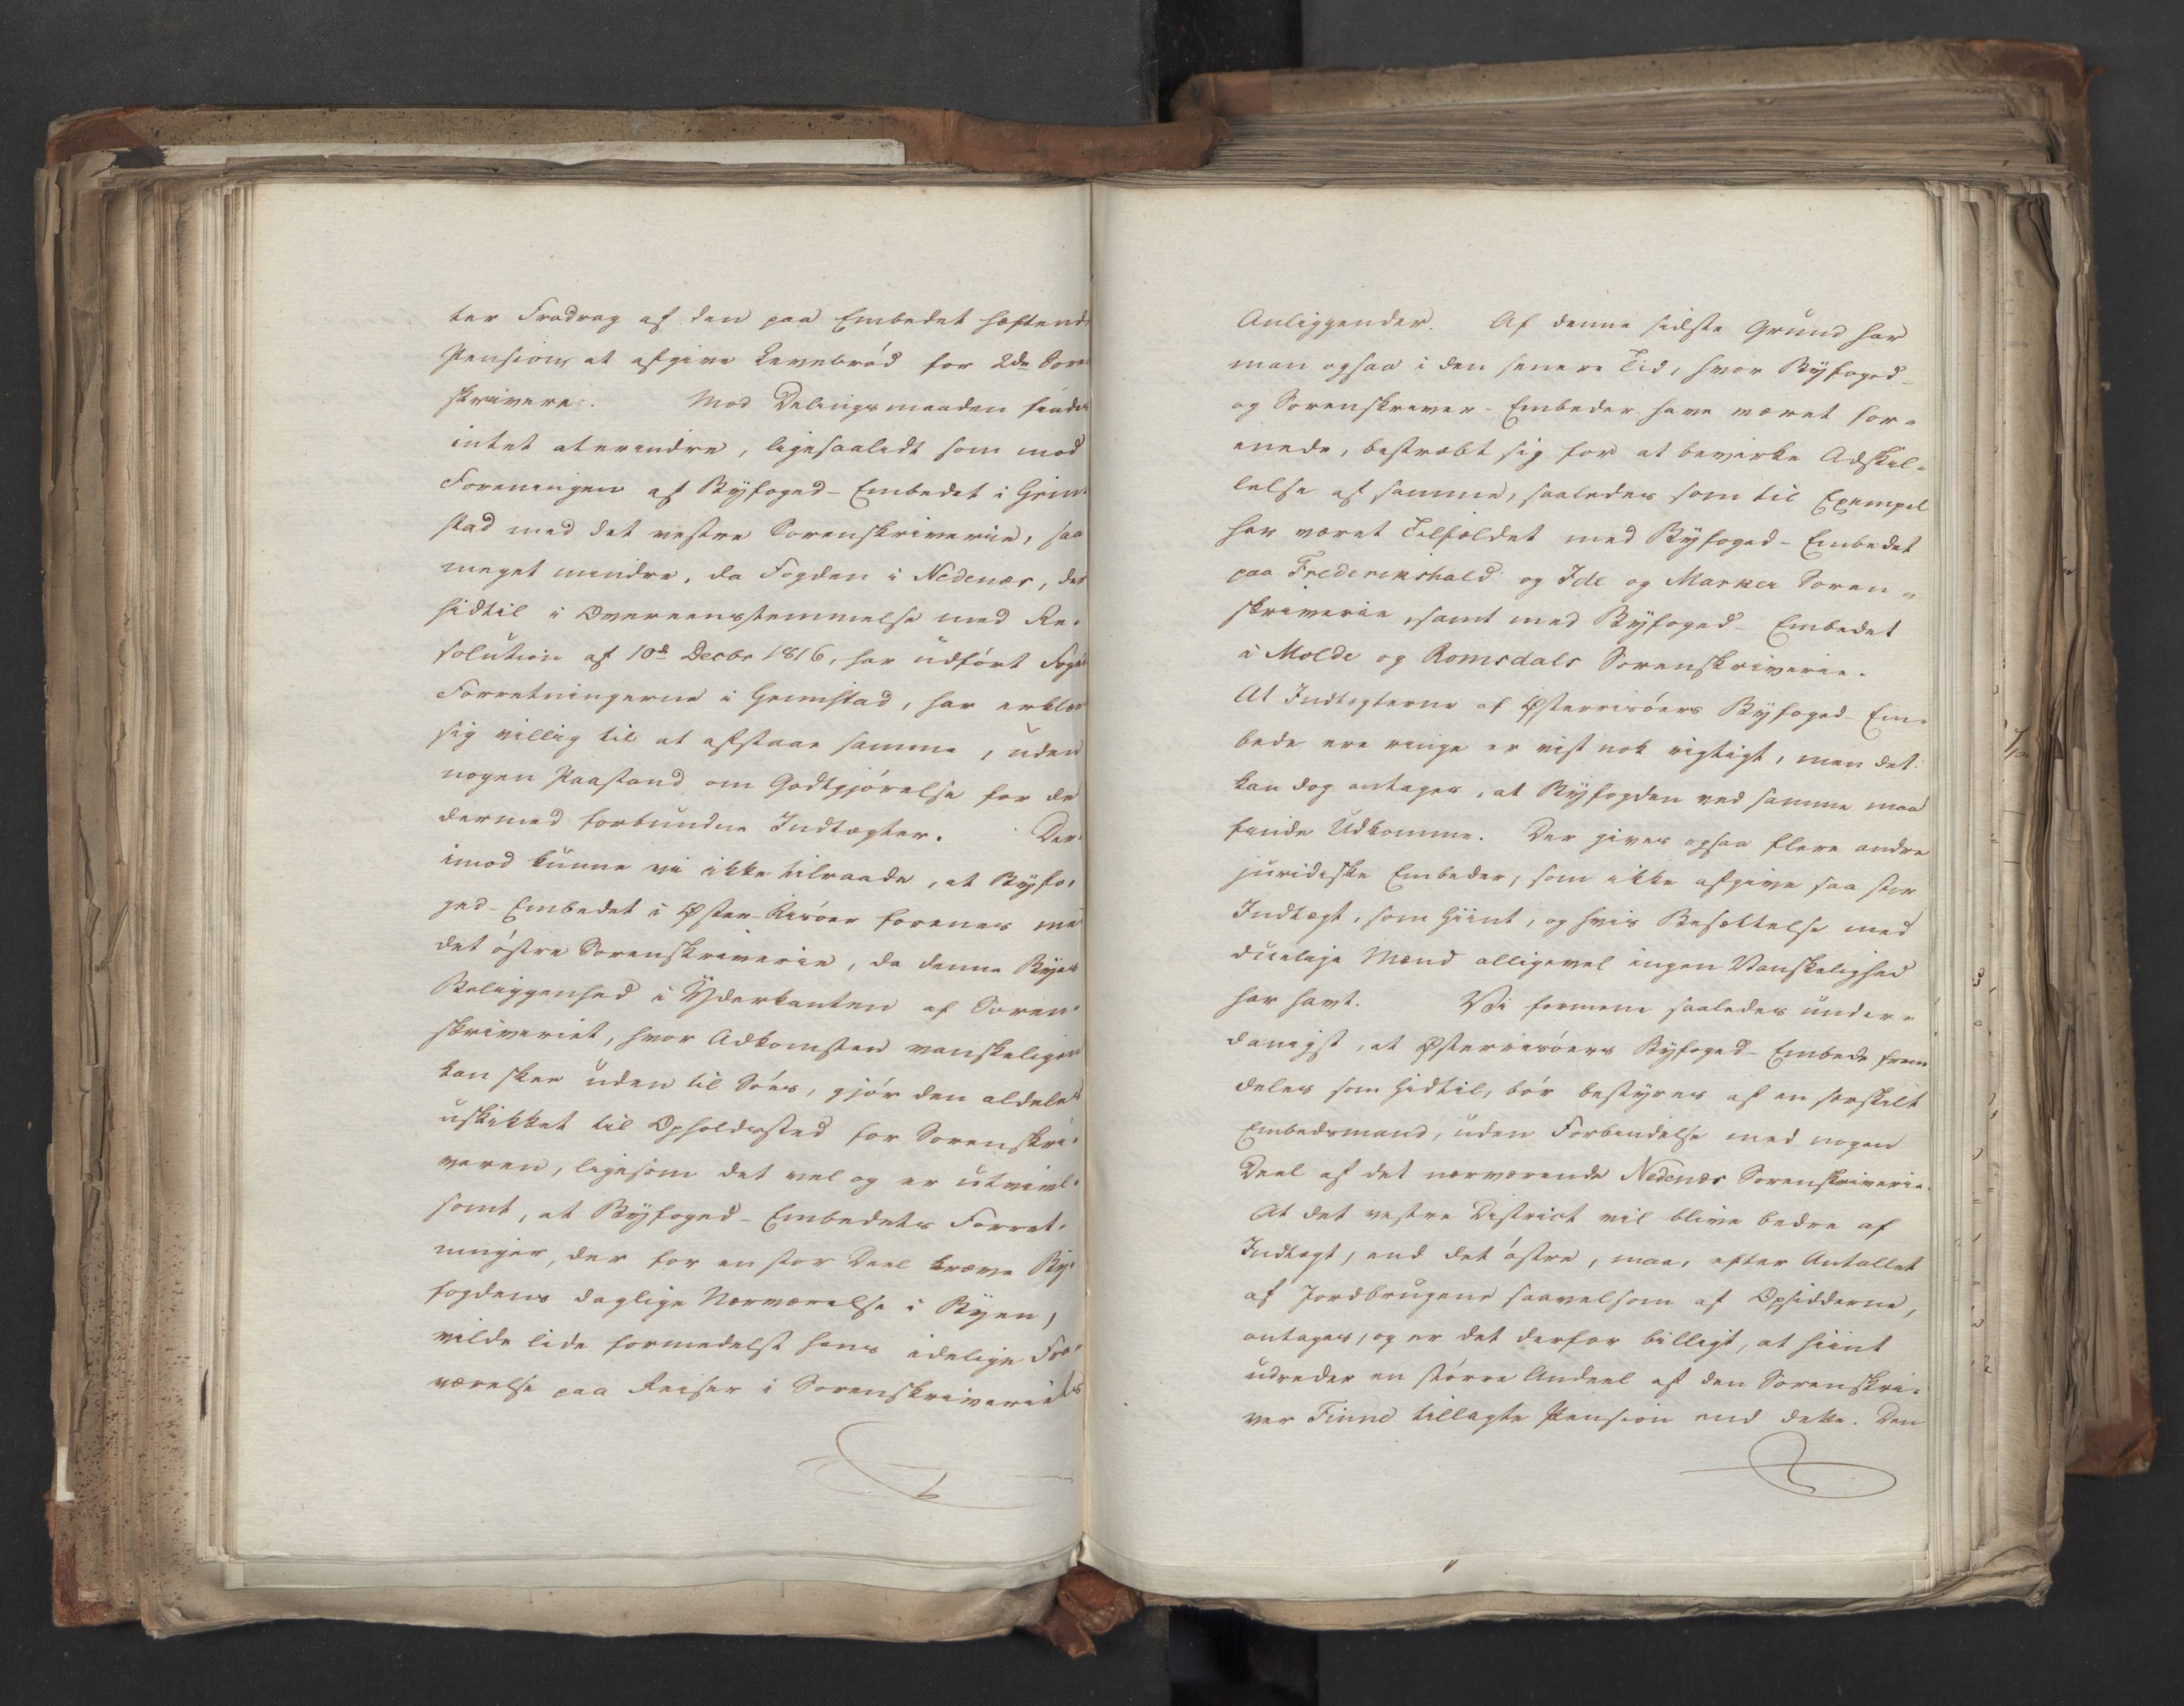 ter Fradrag af den paa Embedet hæftende
Pension, at afgive Levebrød for 2de Soren
skrivere. Mod Delingsmaaden findes
intet at erindre, ligesaalidt som mod
Foreningen af Byfoged-Embedet i Grim¬
stad med det vestre Sorenskriverie, saa
meget mindre, da Fogden i Nedenæs, der
hidtil i Overeensstemmelse med Re¬
solution af 10de Decbr 1816, har udført Foged
Forretningerne i Grimstad, har erklæret
sig villig til at afstaae samme, uden
nogen Paastand om Godtgjørelse for de
dermed forbundne Indtægter. Der¬
imod kunne vi ikke tilraade, at Byfo¬
ged-Embedet i Øster-Risøer forenes med
det østre Sorenskriverie, da denne Byes
Beliggenhed i Yderkanten af Soren¬
skriveriet, hvor Adkomsten vanskeligen
kan skee uden til Søes, gjør den aldeles
uskikket til Opholdssted for Sorenskri¬
veren, ligesom det vel og er utvivl¬
somt, at Byfoged-Embedets Forret¬
ninger, der for en stor Deel kræve By¬
fogdens daglige Nærværelse i Byen,
vilde lide formedelst hans idelige Fra¬
værelse paa Reiser i Sorenskriveriets
Anliggender. Af denne sidste Grund har
man ogsaa i den senere Tid, hvor Byfoged-
og Sorenskriver-Embeder have været for¬
enede, bestræbt sig for at bevirke Adskil¬
lelse af samme, saaledes som til Exempel
har været Tilfældet med Byfoged-Embedet
paa Frederikshald og Ide og Markers Soren¬
skriverie, samt med Byfoged-Embedet
i Molde og Romsdals Sorenskriverie.
At Indtægterne af Østerrisøers Byfoged-Em¬
bede ere ringe er vist nok rigtigt, men det
kan dog antages, at Byfogden ved samme maa
finde Udkomme. Der gives ogsaa flere andre
juridiske Embeder, som ikke afgive saa stor
Indtægt, som hiint, og hvis Besættelse med
duelige Mænd alligevel ingen Vanskelighed
har havt. Vi formene saaledes under¬
danigst, at Østerrisøers Byfoged-Embede frem
deles som hidtil, bør bestyres af en særskilt
Embedsmand, uden Forbindelse med nogen
Deel af det nærværende Nedenæs Sorenskriverie.
At det vestre District vil blive bedre af
Indtægt, end det østre, maa, efter Antallet
af Jordbrugene saavelsom af Opsidderne,
antages, og er det derfor billigt, at hiint
udreder en større Andeel af den Sorenskri¬
ver Finne tillagte Pension end dette. Den